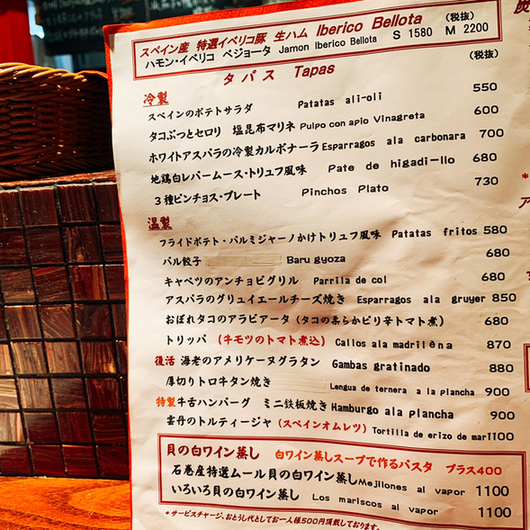 スペイン産 特選イベリコ豚 生ハム Iberico Bellota (税抜)
ハモン・イベリコ ベジョータ Jamon Iberico Bellota S 1580 M 2200
タパス Tapas (税抜)
冷製
スペインのポテトサラダ Patatas ali-oli 550
タコぶつとセロリ 塩昆布マリネ Pulpo con apio Vinagreta 600
ホワイトアスパラの冷製カルボナーラ Esparragos ala carbonara 700
地鶏白レバームース・トリュフ風味 Pate de higadi-llo 680
3種ピンチョス・プレート Pinchos Plato 730
温製
フライドポテト・パルミジャーノかけトリュフ風味 Patatas fritos 580
バル餃子 Baru gyoza 680
キャベツのアンチョビグリル Parrila de col 680
アスパラのグリュイエールチーズ焼き Esparragos ala gruyer 850
おぼれタコのアラビアータ (タコの柔らかピリ辛トマト煮) 680
トリッパ (牛モツのトマト煮込) Callos ala madrilèna 870
復活 海老のアメリケーヌグラタン Gambas gratinado 880
厚切りトロ牛タン焼き Lengua de ternera a la plancha 900
特製牛舌ハンバーグ ミニ鉄板焼き Hamburgo ala plancha 900
雲丹のトルティージャ (スペインオムレツ) Tortilla de erizo de mar 1100
貝の白ワイン蒸し 白ワイン蒸しスープで作るパスタ プラス400
石巻産特選ムール貝の白ワイン蒸し Mejilones al vapor 1100
いろいろ貝の白ワイン蒸し Los mariscos al vapor 1100
*サービスチャージ、おとうし代としてお一人様500円頂戴しております。